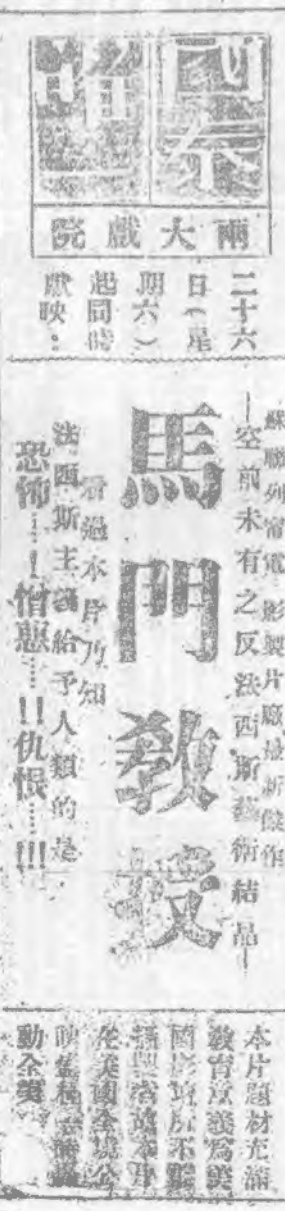 國泰
唯一
兩大戲院
二十六
日(星
期六)
起同時
獻映:
蘇聯列甯電影製片廠最新傑作
—空前未有之反法西斯藝術結品—
馬門教授
看過本片乃知
法西斯主義給予人類的是
恐怖……!憎惡……!!仇恨……!!!
本片題材充滿
教育意義為美
國影壇所不
攝製者故本片
在美國全境公
映
動全美